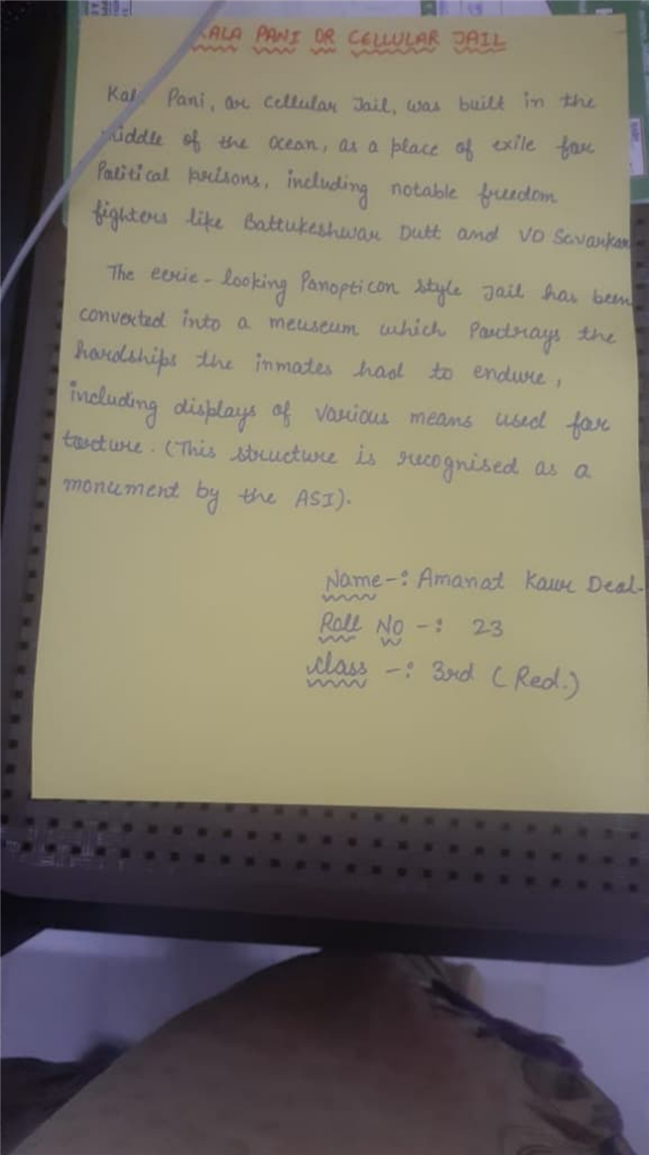 KALA PANI OR CELLULAR JAIL
Kala Pani, or Cellular Jail, was built in the
middle of the ocean, as a place of exile for
Political prisons, including notable freedom
fighters like Battukeshwar Dutt and VD Savarkar
The eerie-looking Panopticon style Jail has been
converted into a meuseum which Pordrays the
hardships the inmates had to endure,
including displays of various means used for
torture. (This structure is recognised as a
monument by the ASI).
Name-: Amanat Kaur Deol.
Roll No -: 23
class -: 3rd (Red.)